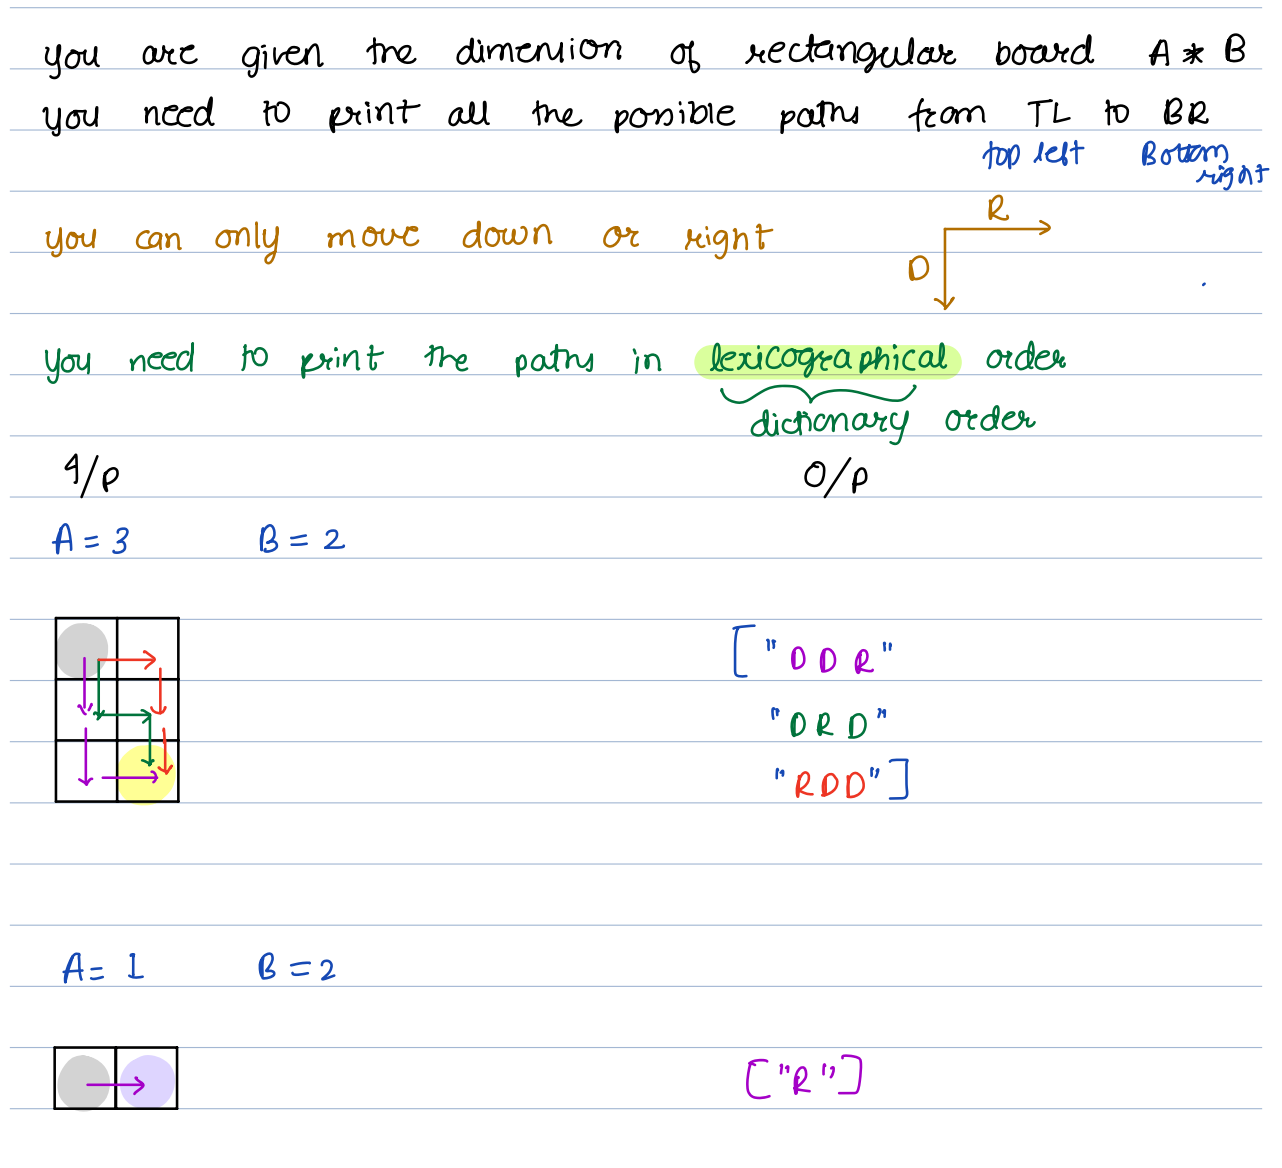 you are given the dimension of rectangular board A * B
you need to print all the possible paths from TL to BR
top left Bottom right
you can only move down or right
R
D
you need to print the paths in lexicographical order
dictionary order
I/p O/p
A = 3 B = 2
["DDR"
"DRD"
"RDD"]
A = 1 B = 2
["R"]